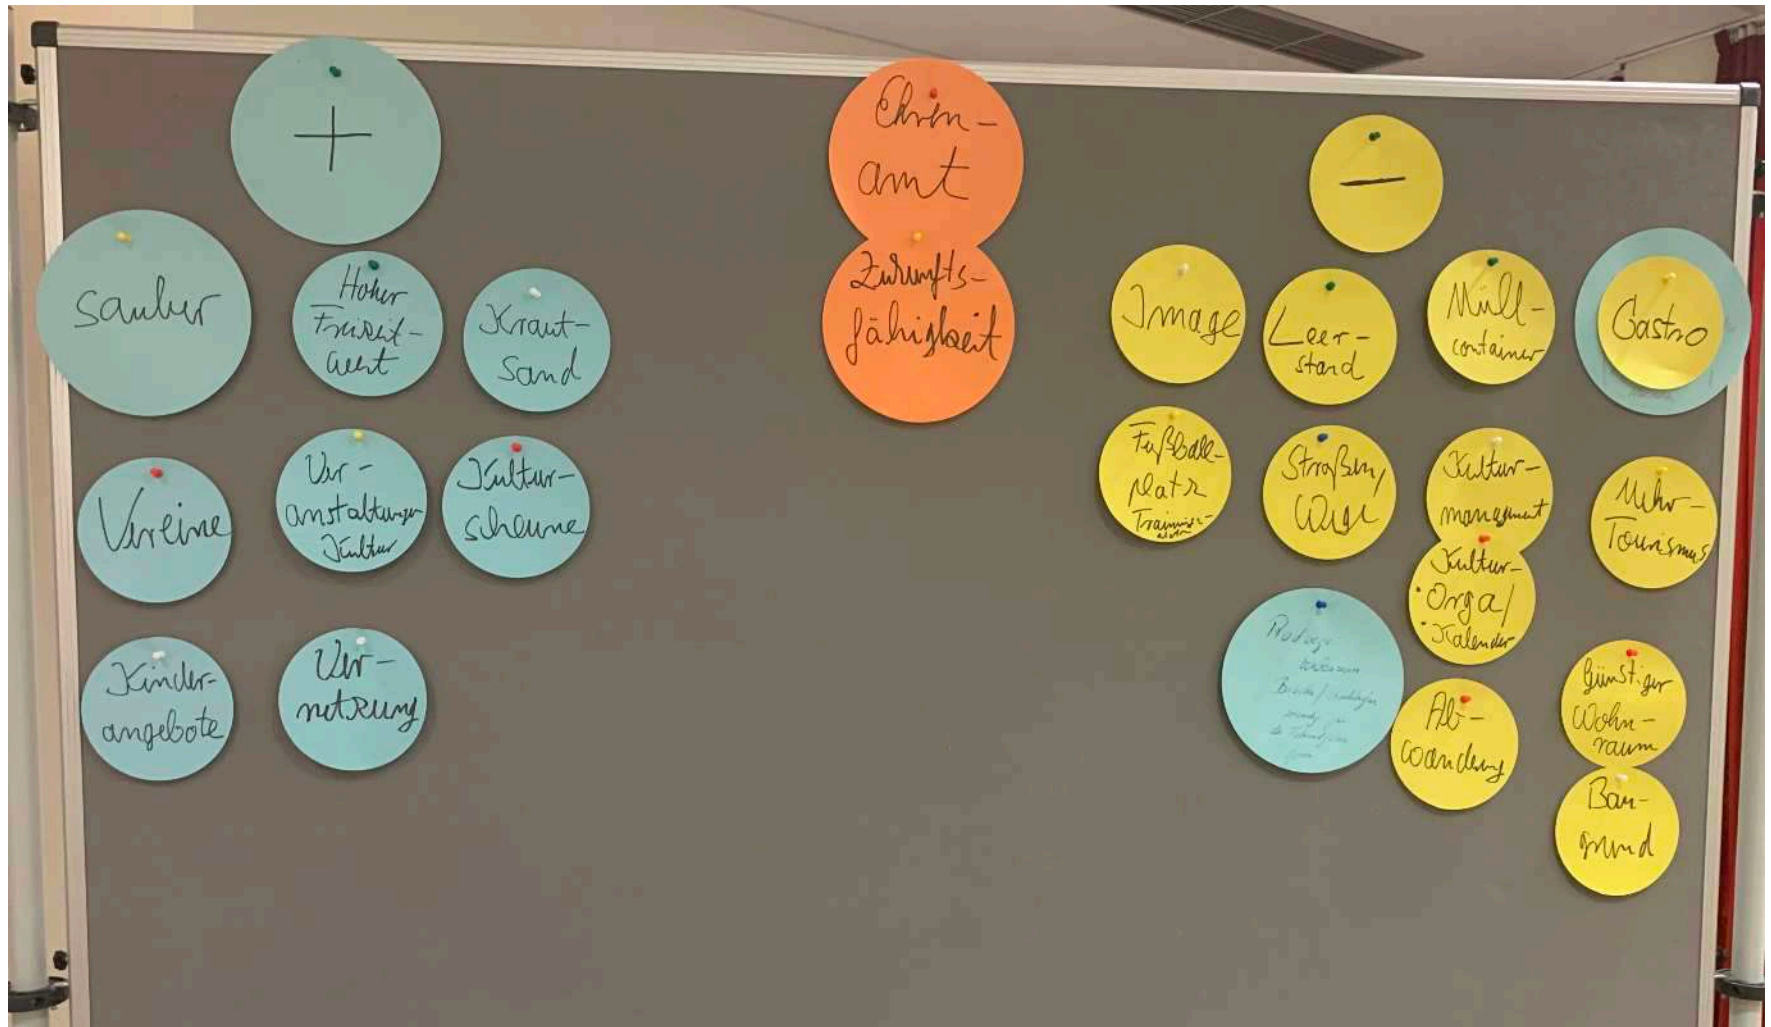 +
sauber
Hoher
Freizeit-
wert
Kraut-
sand
Vereine
Ver-
anstaltungen
Kultur
Kultur-
scheune
Kinder-
angebote
Ver-
netzung
Ehren-
amt
Zukunfts-
fähigkeit
—
Image
Leer-
stand
Müll-
container
Gastro
Fußball-
platz
Straßen/
Wege
Kultur-
management
Kultur-
Orga/
Kalender
Mehr-
Tourismus
Ab-
wanderung
Günstiger
Wohn-
raum
Bau-
grund